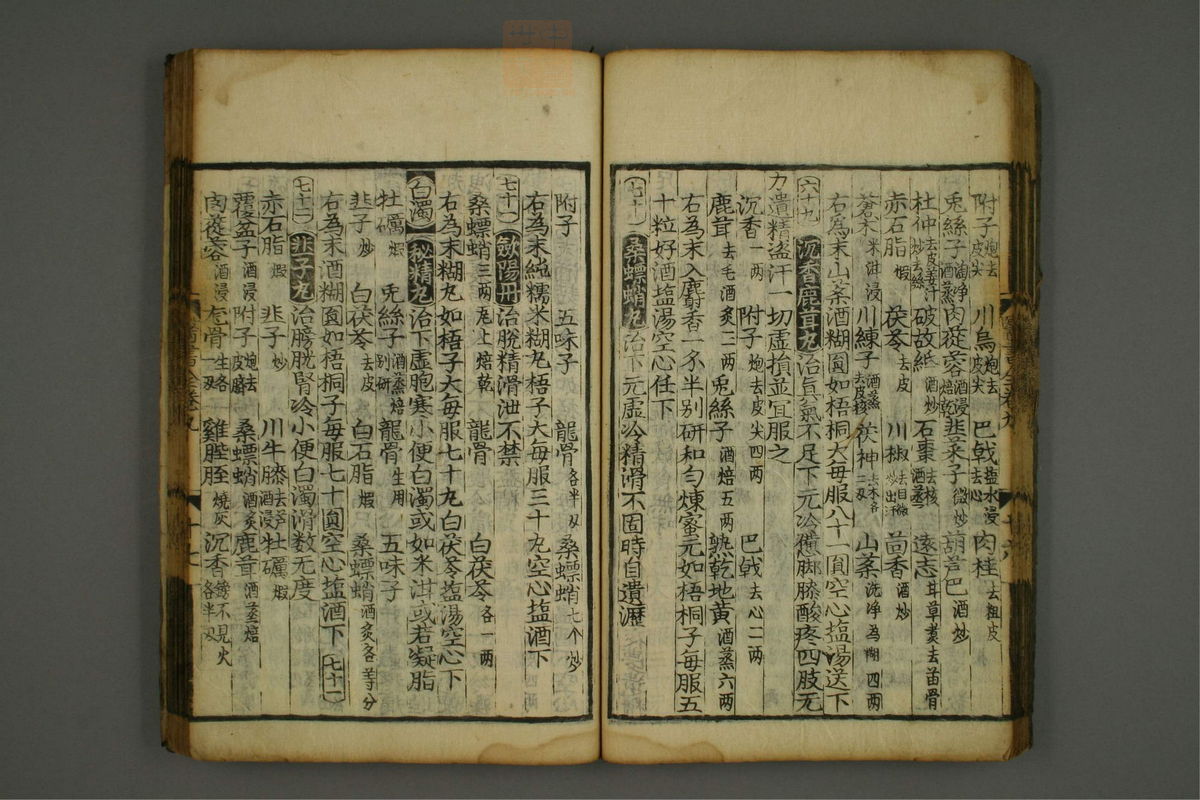 附子炮去皮尖 川烏炮去皮尖 巴戟盐水浸去心 肉桂去粗皮
兎絲子淘净酒蒸 肉蓯蓉酒浸焙乾 韭菜子微炒 葫芦巴酒炒
杜仲去皮姜汁炒去絲 破故紙酒炒 石棗去核酒蒸 遠志茸草煑去苗骨
赤石脂煆 茯苓去皮 川椒去目 炒出汗 茴香酒炒
蒼朮米泔浸 川練子酒蒸去皮核 茯神去木各二两 山薬洗净為糊四两
右為末山薬酒糊圓如梧桐大每服八十一圓空心盐湯送下
六十九 沉香鹿茸丸 治真氣不足下元冷憊脚膝酸疼四肢无
力遺精盗汗一切虚損並宜服之
沉香一两 附子炮去皮尖四两 巴戟去心二两
鹿茸去毛酒炙二两 兎絲子酒焙五两 熟乾地黄酒蒸六两
右為末入麝香一錢半别研和匀煉蜜元如梧桐子每服五
十粒好酒盐湯空心任下
七十 桑螵蛸丸 治下元虚冷精滑不固時自遺瀝
附子 五味子 龍骨各半两 桑螵蛸七个炒
右為末純糯米糊丸梧子大每服三十丸空心盐酒下
七十一 歛陽丹 治脫精滑泄不禁
桑螵蛸三两瓦上焙乾 龍骨 白茯苓各一两
右為末糊丸如梧子大每服七十丸白茯苓盐湯空心下
白濁 秘精丸 治下虚胞寒小便白濁或如米泔或若凝脂
牡礪煆 兎絲子酒蒸焙别研 龍骨生用 五味子
韭子炒 白茯苓去皮 白石脂煆 桑螵蛸酒炙各等分
右為末酒糊圓如梧桐子每服七十圓空心盐酒下 七十二
七十二 韭子丸 治膀胱腎冷小便白濁滑数无度
赤石脂煆 韭子炒 川牛膝去芦酒浸 牡礪煆
覆盆子酒浸 附子炮去皮臍 桑螵蛸酒炙 鹿茸酒蒸焙
肉蓯蓉酒浸 龙骨生各一两 雞膍胵燒灰 沉香鎊不見火各半两